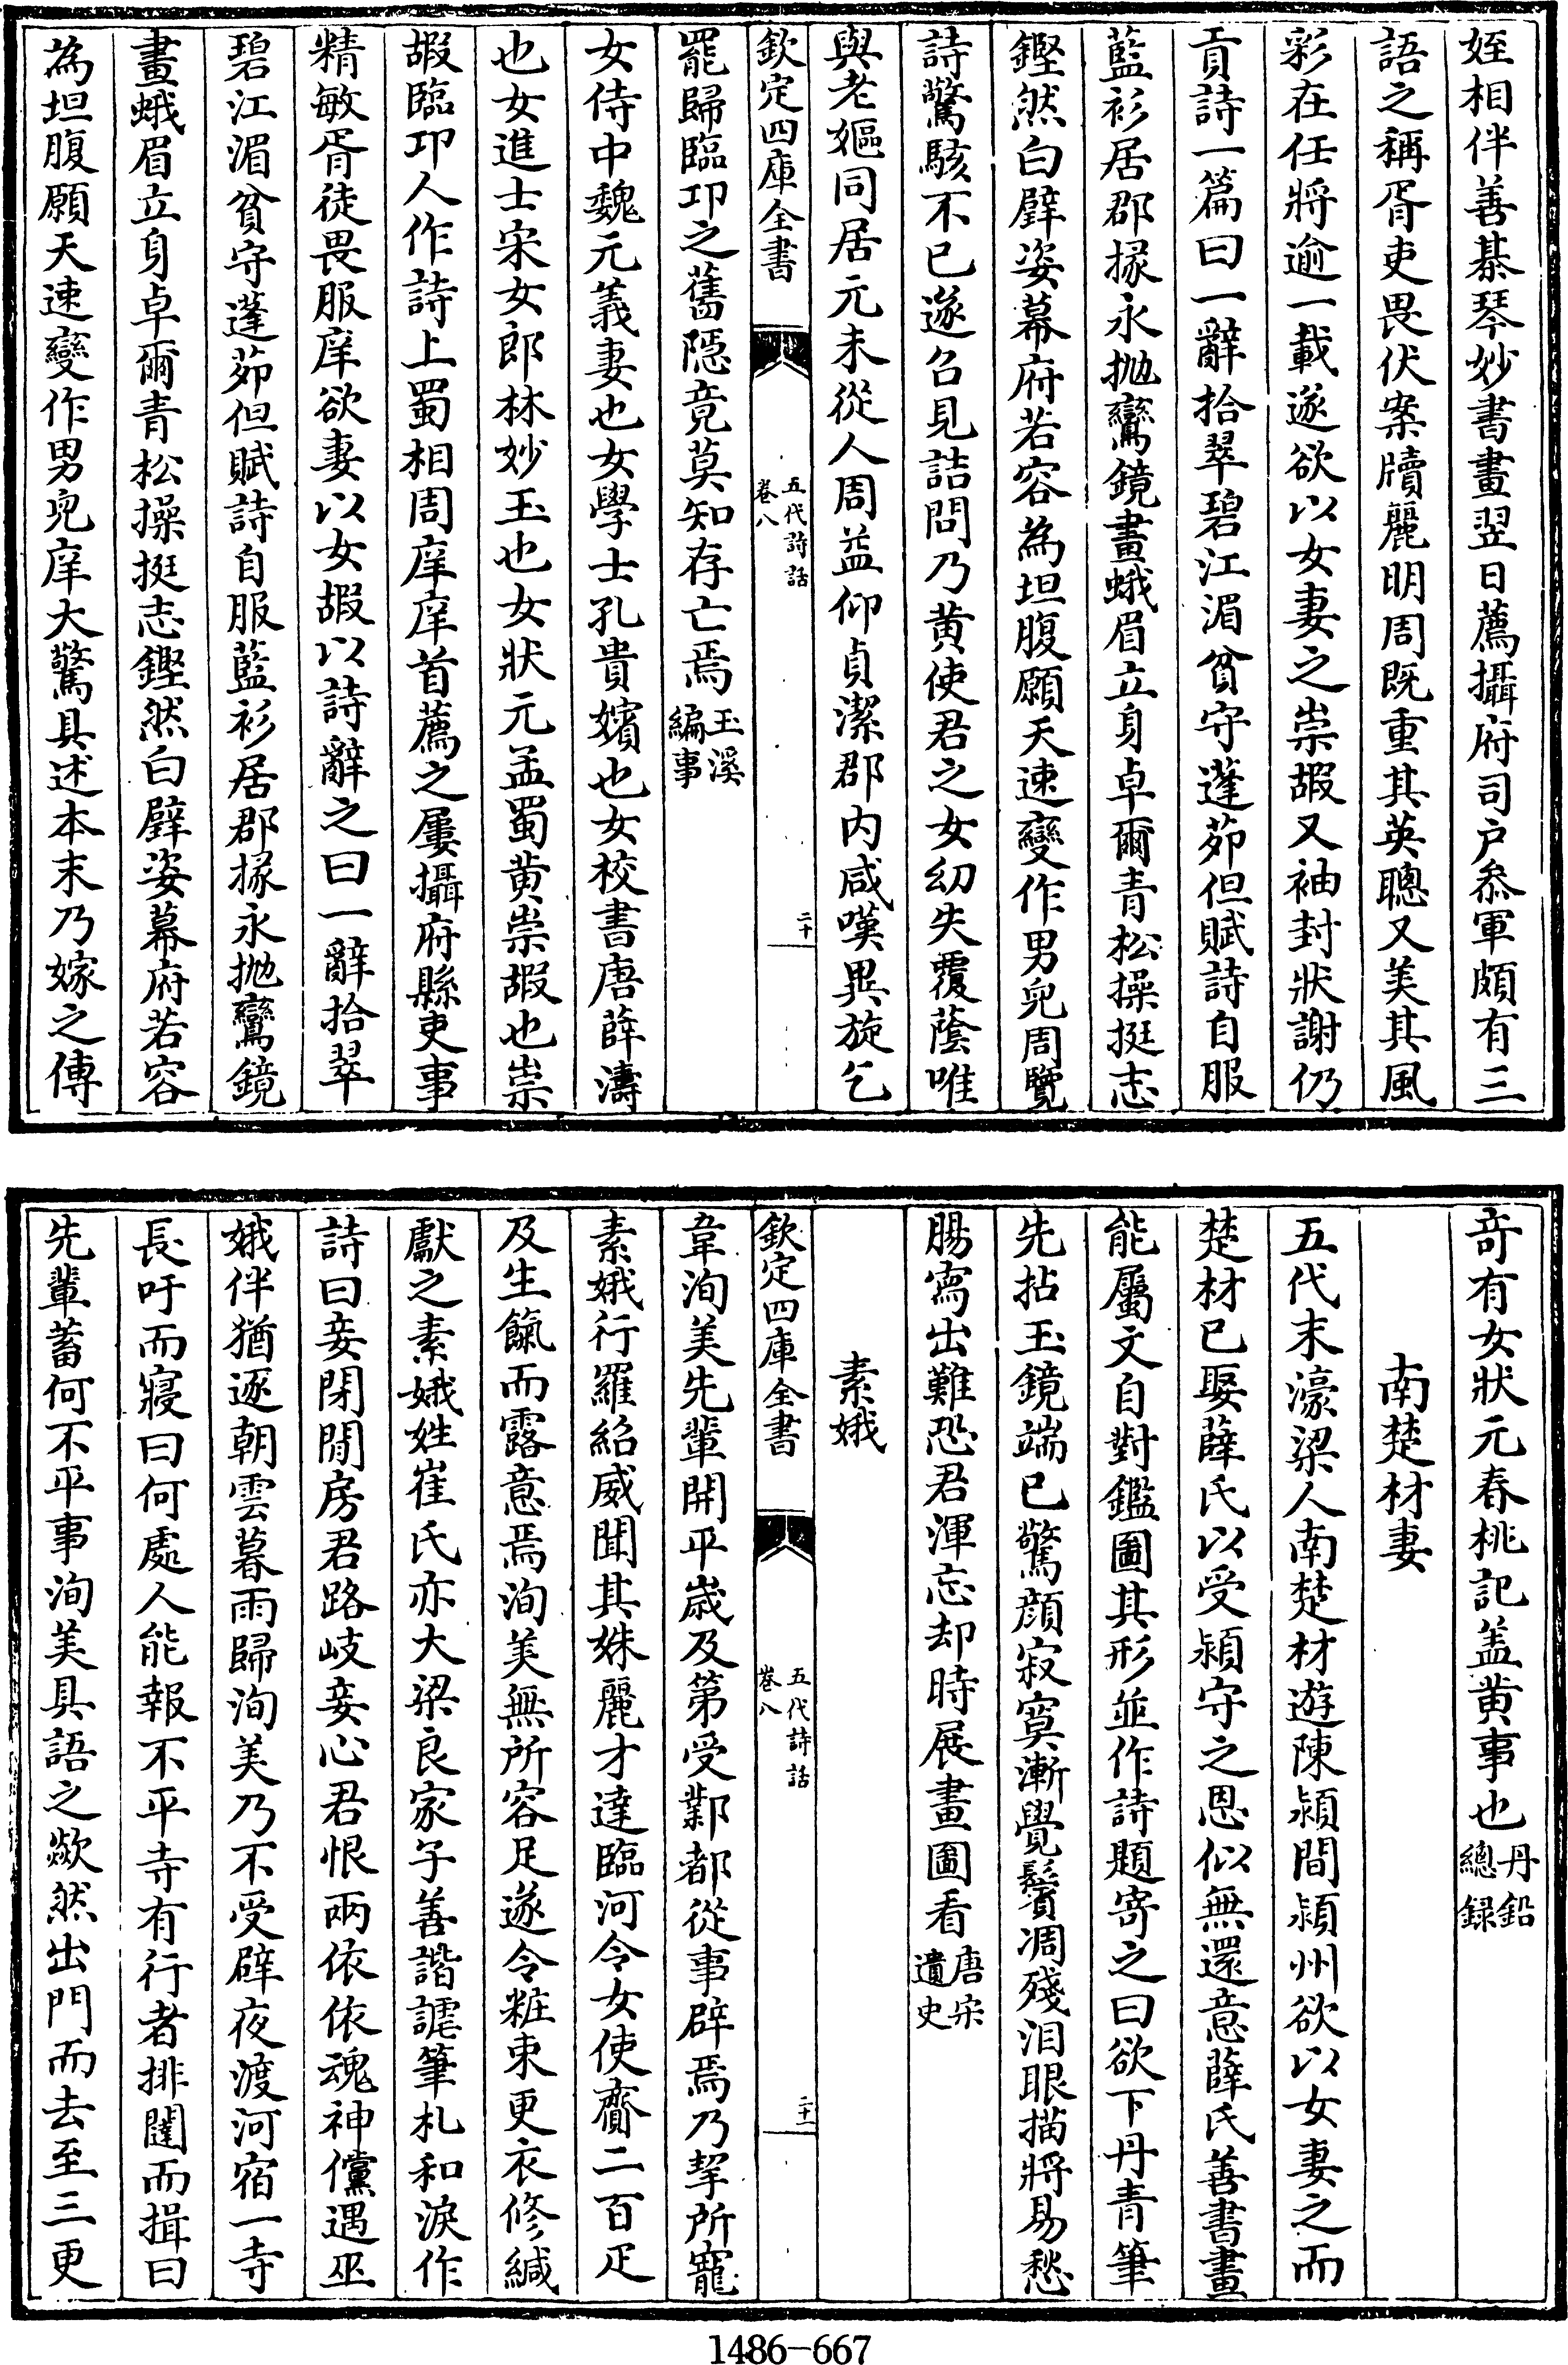 姪相伴善棊琴妙書畫翌日薦攝府司户叅軍頗有三
語之稱胥吏畏伏案牘麗明周既重其英聰又美其風
彩在任將逾一載遂欲以女妻之崇嘏又袖封狀謝仍
貢詩一篇曰一辭拾翠碧江湄貧守蓬茆但賦詩自服
藍衫居郡掾永抛鸞鏡畫蛾眉立身卓爾青松操挺志
鏗然白璧姿幕府若容為坦腹願天速變作男兒周覽
詩驚駭不已遂召見詰問乃黄使君之女幼失覆蔭唯
與老嫗同居元未從人周益仰貞潔郡内咸嘆異旋乞
欽定四庫全書
五代詩話
卷八
二十
罷歸臨邛之舊隱竟莫知存亡焉玉溪
編事
女侍中魏元義妻也女學士孔貴嬪也女校書唐薛濤
也女進士宋女郎林妙玉也女狀元孟蜀黄崇嘏也崇
嘏臨邛人作詩上蜀相周庠庠首薦之屢攝府縣吏事
精敏胥徒畏服庠欲妻以女嘏以詩辭之曰一辭拾翠
碧江湄貧守蓬茆但賦詩自服藍衫居郡掾永抛鸞鏡
畫蛾眉立身卓爾青松操挺志鏗然白璧姿幕府若容
為坦腹願天速變作男兒庠大驚具述本末乃嫁之傳
奇有女狀元春桃記盖黄事也丹鉛
總録
南楚材妻
五代末濠梁人南楚材遊陳潁間潁州欲以女妻之而
楚材已娶薛氏以受潁守之恩似無還意薛氏善書畫
能屬文自對鑑圖其形並作詩題寄之曰欲下丹青筆
先拈玉鏡端已驚顔寂寞漸覺鬢凋殘淚眼描將易愁
腸寫出難恐君渾忘却時展畫圖看唐宋
遺史
素娥
欽定四庫全書
五代詩話
卷八
二十一
韋洵美先輩開平歲及第受鄴都從事辟焉乃挈所寵
素娥行羅紹威聞其姝麗才達臨河令女使齎二百疋
及生餼而露意焉洵美無所容足遂令粧束更衣修緘
獻之素娥姓崔氏亦大梁良家子善諧謔筆札和淚作
詩曰妾閉閒房君路岐妾心君恨兩依依魂神儻遇巫
娥伴猶逐朝雲暮雨歸洵美乃不受辟夜渡河宿一寺
長吁而寢曰何處人能報不平寺有行者排闥而揖曰
先輩蓄何不平事洵美具語之歘然出門而去至三更
1486-667